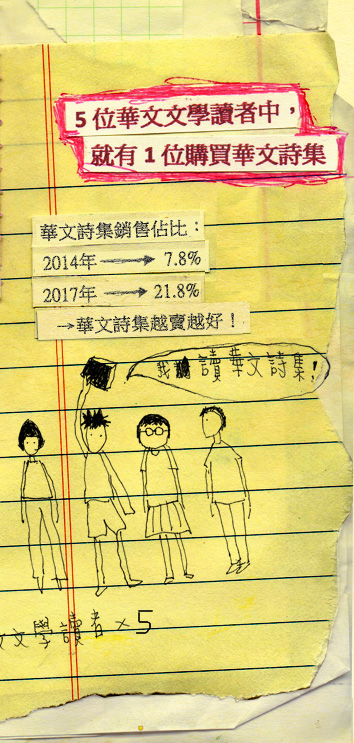 5 位華文文學讀者中，
就有 1 位購買華文詩集
華文詩集銷售佔比：
2014年 → 7.8%
2017年 → 21.8%
→華文詩集越賣越好！
我讀華文詩集！
文文學讀者 × 5